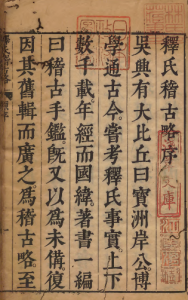 釋氏稽古略序
吳興有大比丘曰寶洲岸公博
學通古今嘗考釋氏事實上下
數千載年經而國緯著書一編
曰稽古手鑑旣又以為未備復
因其舊輯而廣之為稽古略至